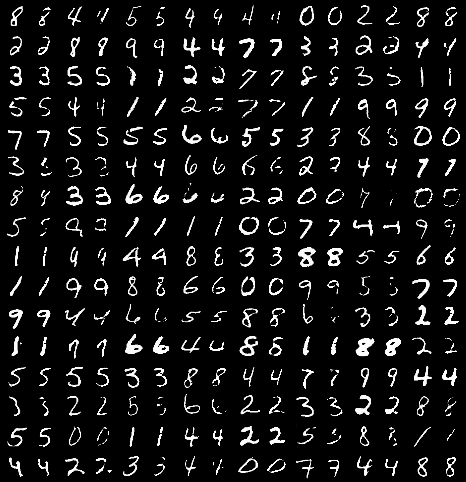 8 8 4 4 5 5 9 9 4 4 0 0 2 2 8 8
2 2 8 8 9 9 4 4 7 7 3 3 2 2 4 4
3 3 5 5 1 1 2 2 7 7 8 8 3 3 1 1
5 5 4 4 1 1 2 2 7 7 1 1 9 9 9 9
7 7 5 5 5 5 6 6 5 5 3 3 8 8 0 0
3 3 3 3 4 4 6 6 6 6 2 2 4 4 7 7
8 8 3 3 6 6 6 6 2 2 0 0 7 0 0
5 5 9 9 1 1 1 1 0 0 7 7 4 4 9 9
1 1 9 9 4 4 8 8 3 3 8 8 5 5 6 6
1 1 9 9 8 8 6 6 0 0 9 9 5 5 7 7
9 9 4 4 6 6 5 5 8 8 6 3 3 2 2
1 1 7 7 6 6 4 4 8 8 1 1 8 8 2 2
5 5 5 5 3 3 8 8 4 4 7 7 9 9 4 4
3 3 2 2 5 5 6 6 2 2 3 3 2 2 8 8
5 5 0 0 1 1 4 4 2 2 5 5 8 8 1 1
4 4 2 2 3 3 4 4 0 0 7 7 4 4 8 8